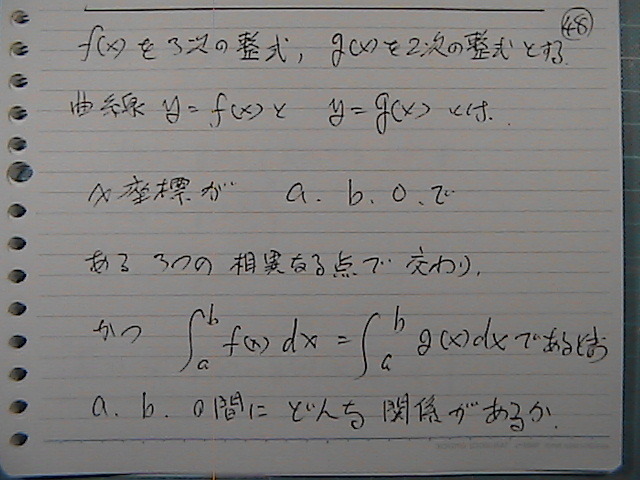 ㊽
f(x)を3次の整式, g(x)を2次の整式とする.
曲線 y=f(x)と y=g(x) とは.
x座標が a. b. 0. で
ある 3つの 相異なる点で 交わり.
かつ ∫_a^b f(x) dx = ∫_a^b g(x)dx であるとき
a. b. 0間に どんな 関係があるか.